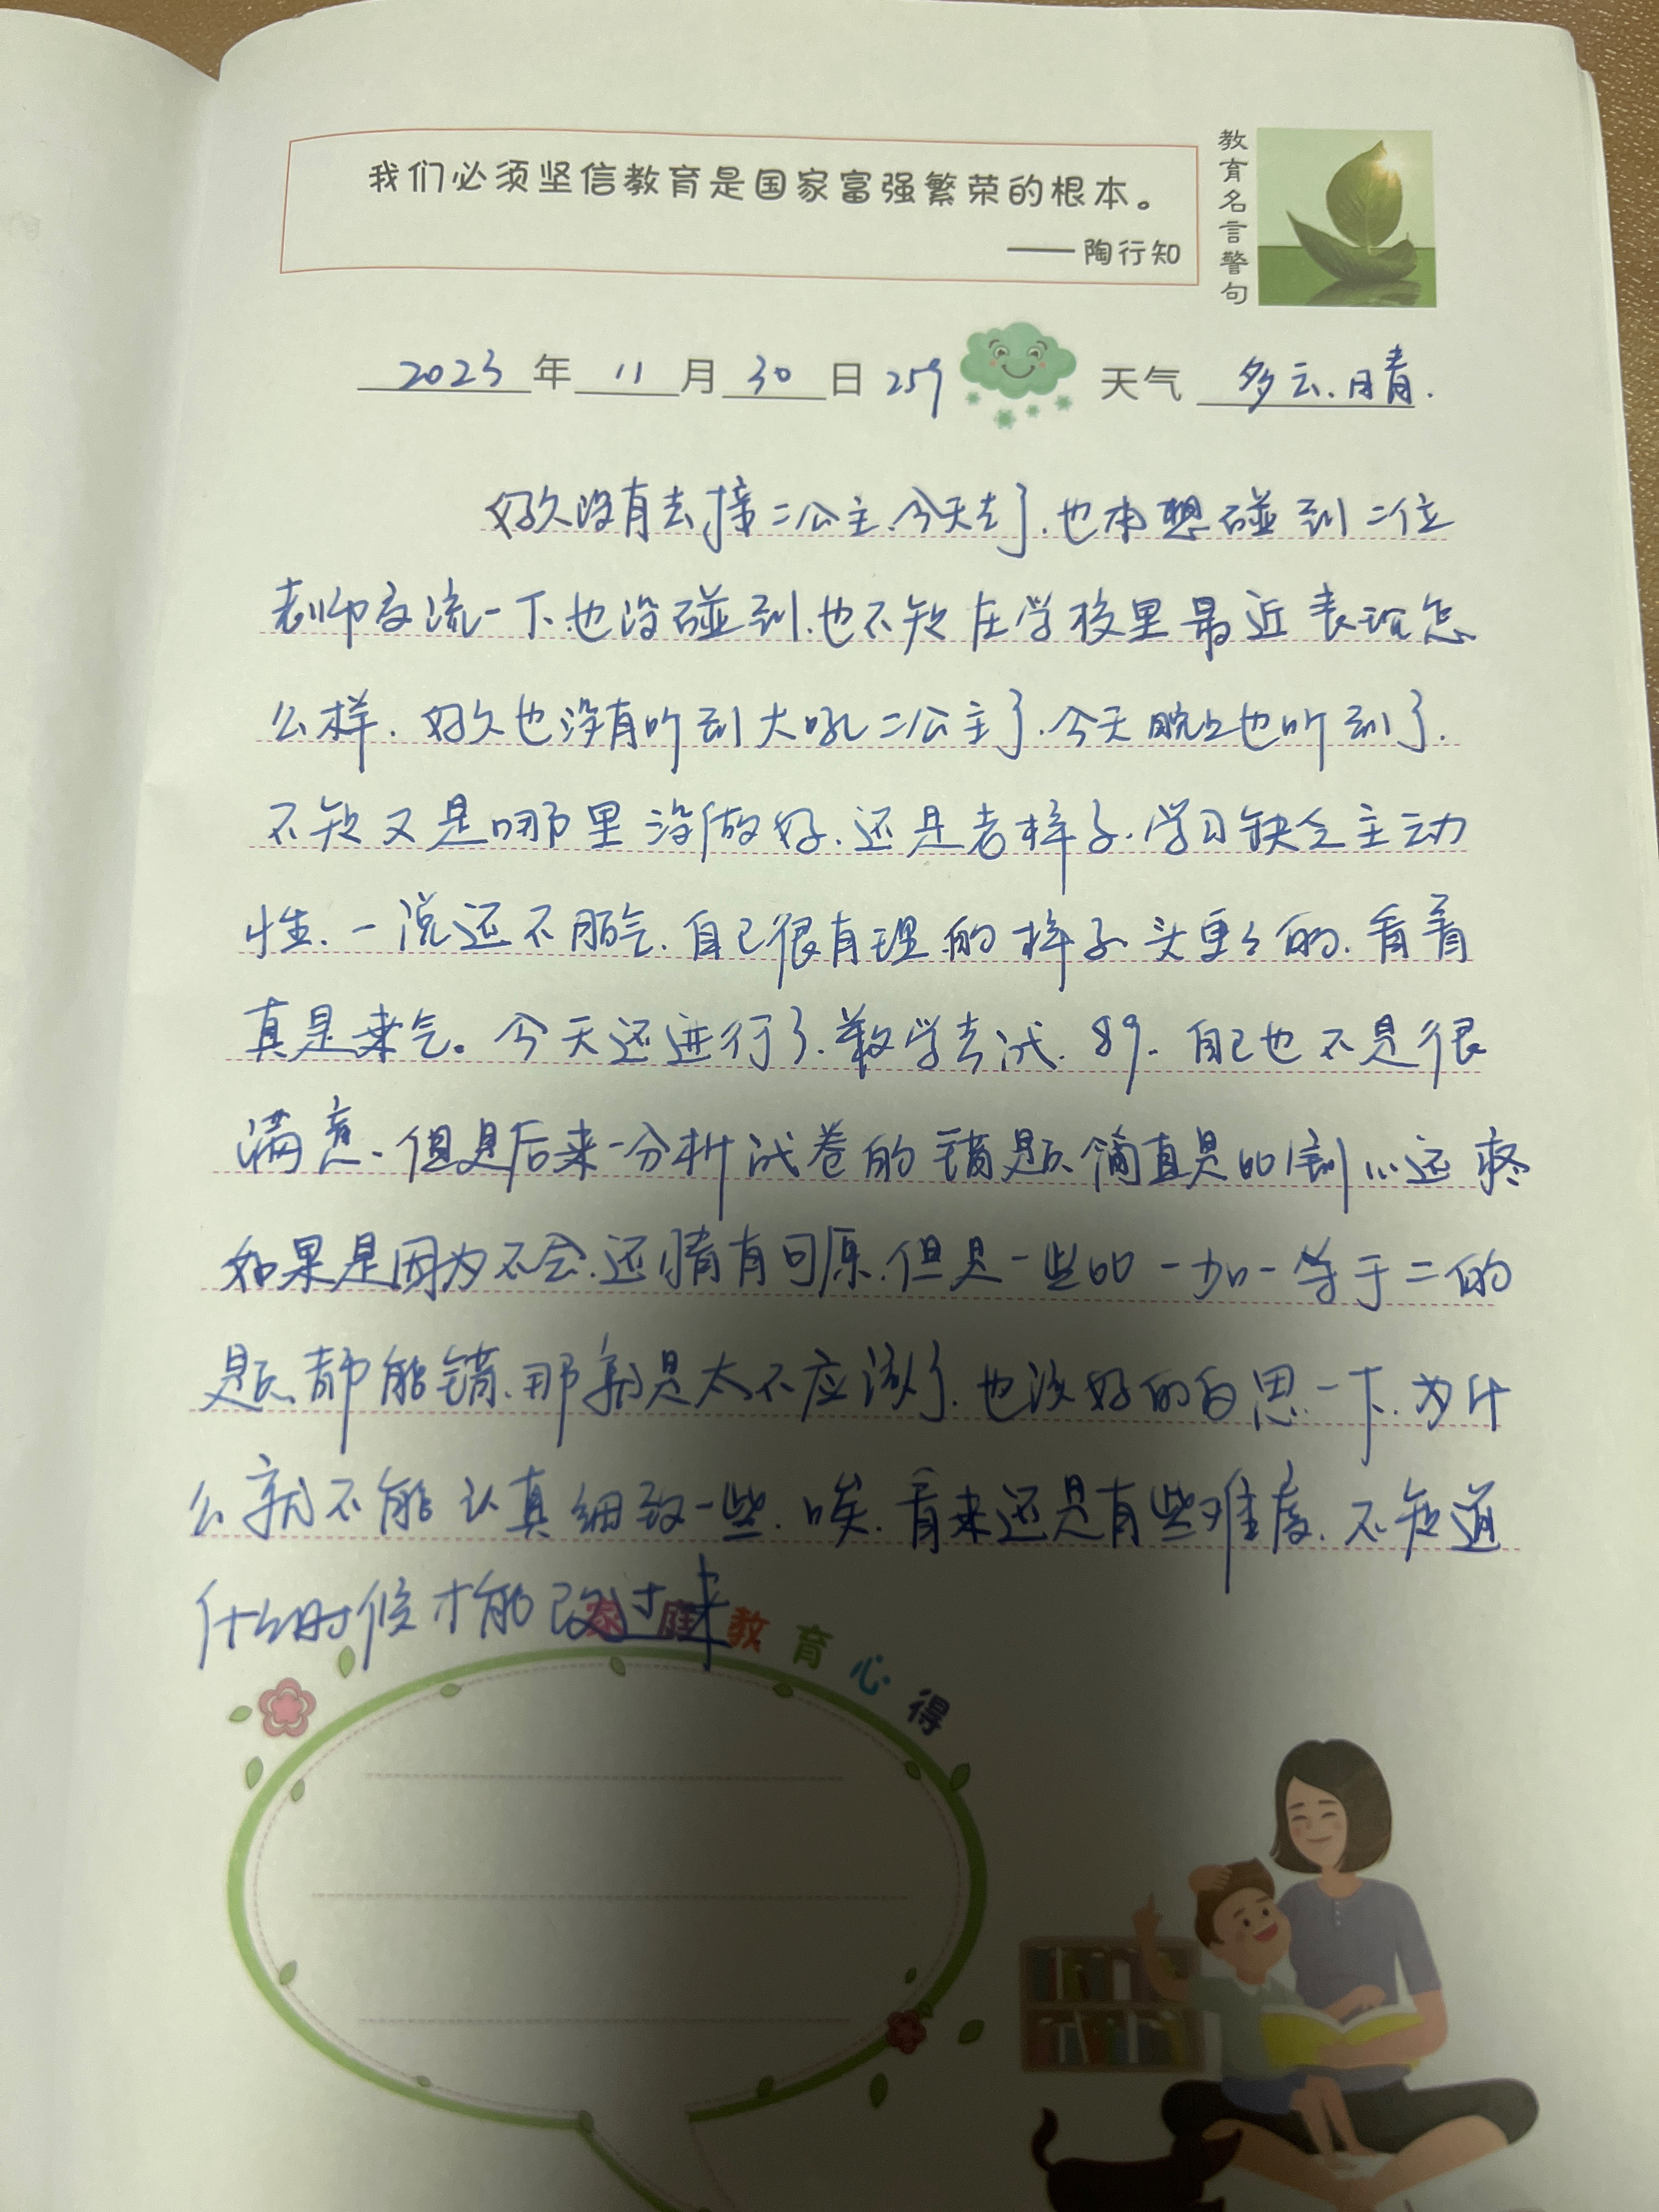 我们必须坚信教育是国家富强繁荣的根本。
——陶行知
教育名言警句
2023年11月30日 259 天气 多云.晴.
好久没有去接二公主.今天去了.也本想碰到二位
老师交流一下.也没碰到.也不知在学校里最近表现怎
么样.好久也没有听到大吼二公主了.今天晚上也听到了.
不知又是哪里没做好.还是老样子.学习缺乏主动
性.一说还不服气.自己很有理的样子.头更々的.看着
真是来气。今天还进行了.数学考试.89.自己也不是很
满意.但是后来一分析试卷的错题.简直是心还疼
如果是因为不会.还情有可原.但是一些一加一等于二的
题.都能错.那就是太不应该了.也没好的自思一下.为什
么就不能认真细致一些.唉.看来还是有些难度.不知道
什么时候才能改过来
家庭教育心得